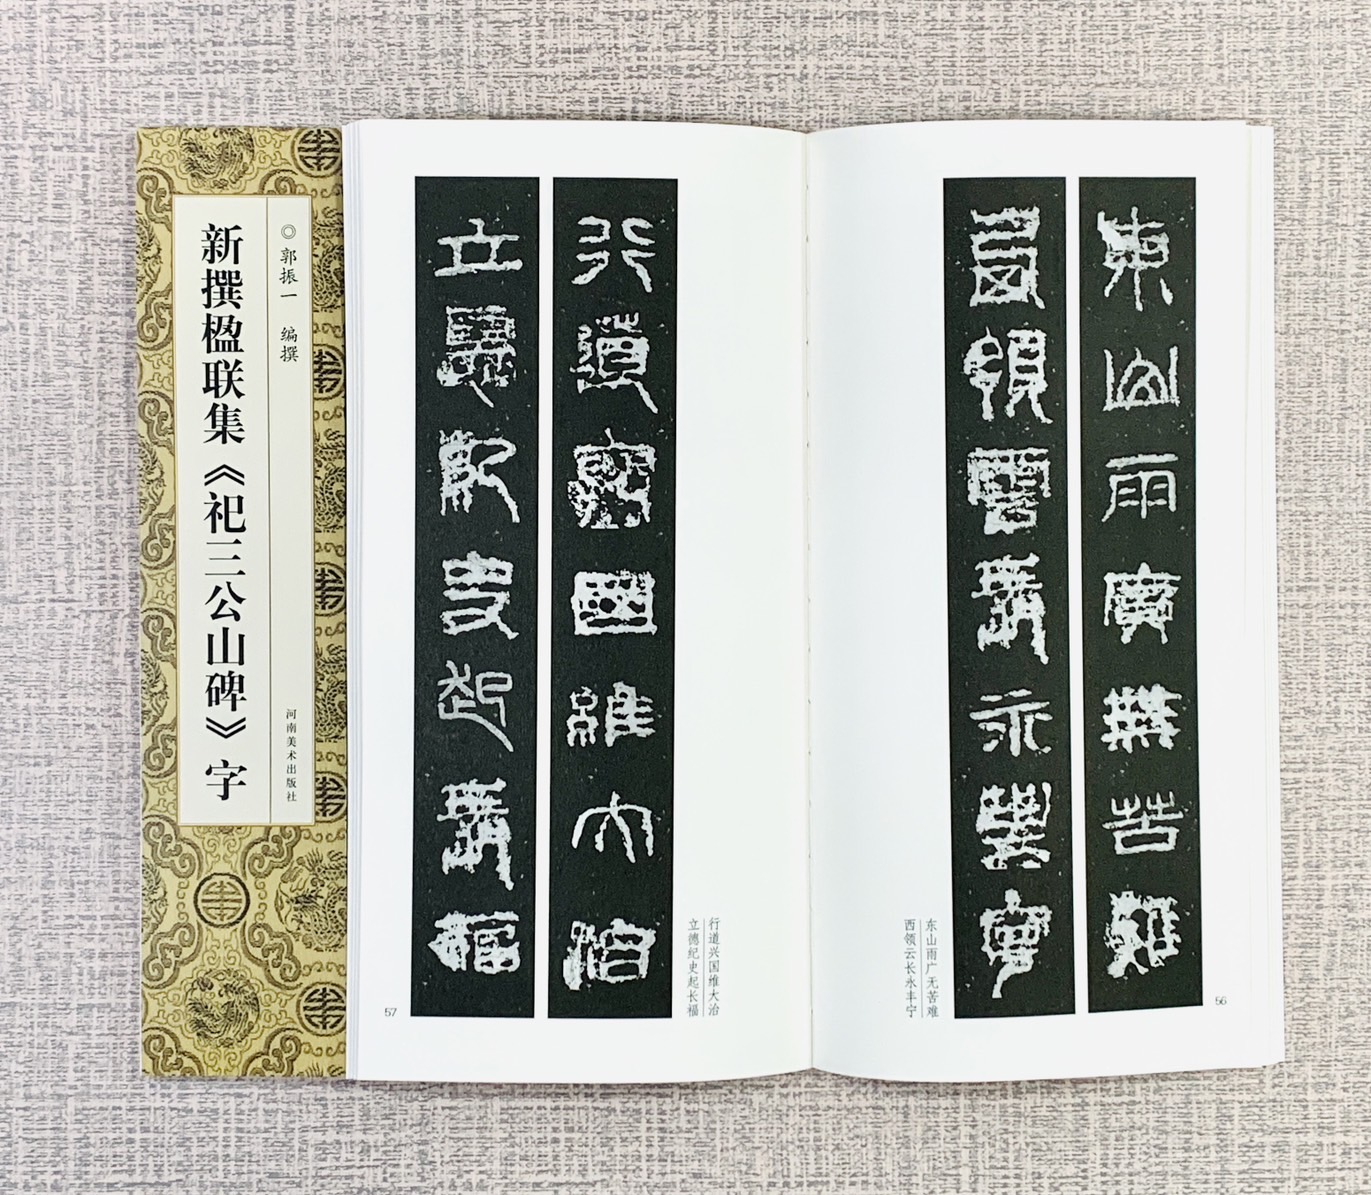 新撰楹联集《祀三公山碑》字
◎郭振一 编撰
河南美术出版社
東山雨廣無苦難
西領雲長永豐寧
东山雨广无苦难
西领云长永丰宁
56
行道興國維大治
立德紀史起長福
行道兴国维大治
立德纪史起长福
57